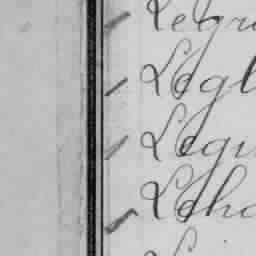 Legr
Legl
Legu
Leha